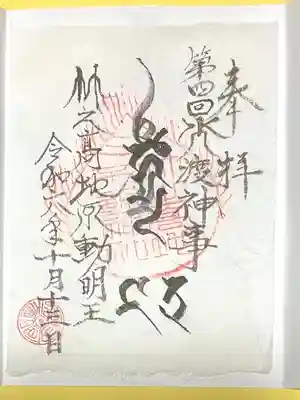 奉拝
第四回火渡神事
竹之髙地不動明王
令和六年十月十三日